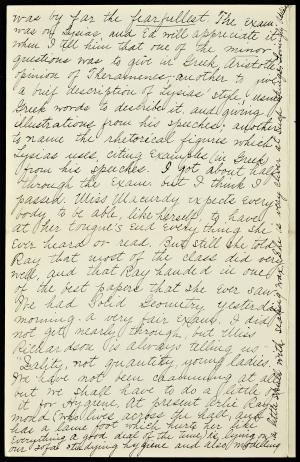 was by far the fearfullest. The exam.
was on Lysias, and Ed will appreciate it
when I tell him that one of the minor
questions was to give in Greek, Aristotle's
opinion of Theramenes; another to give
a brief description of Lysias' style, using
Greek words to describe it, and giving
illustrations from his speeches; another
to name the rhetorical figures which
Lysias uses, citing examples in Greek
from his speeches. I got about half
through the exam. but I think I
passed. Miss Macurdy expects every
body to be able, like herself, to have
at her tongue's end everything she
ever heard or read. But still she told
Ray that most of the class did very
well, and that Ray handed in one
of the best papers that she ever saw.
We had Solid Geometry yesterday
morning - a very fair exam. I did
not get nearly through, but Miss
Richardson is always telling us -
Quality, not quantity, young ladies.
We have not been examining at all
but we shall have to do a little of
it for Hygiene. At present Price Ray-
mond (who lives across the hall, and
has a lame foot which hurts her like
everything a good deal of the time) is lying on
our sofa studying hygiene, and also modelling
a little with
she is very clever at